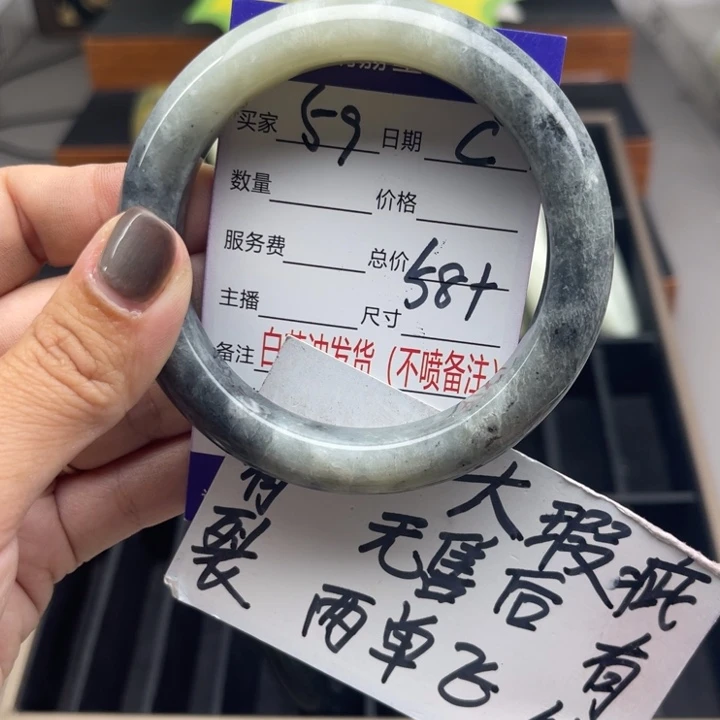 买家 59 日期 C
数量 价格
服务费 总价 58+
主播 尺寸
备注 白 油发货(不喷备注)
有 大瑕疵 有
裂 无售后
两单飞